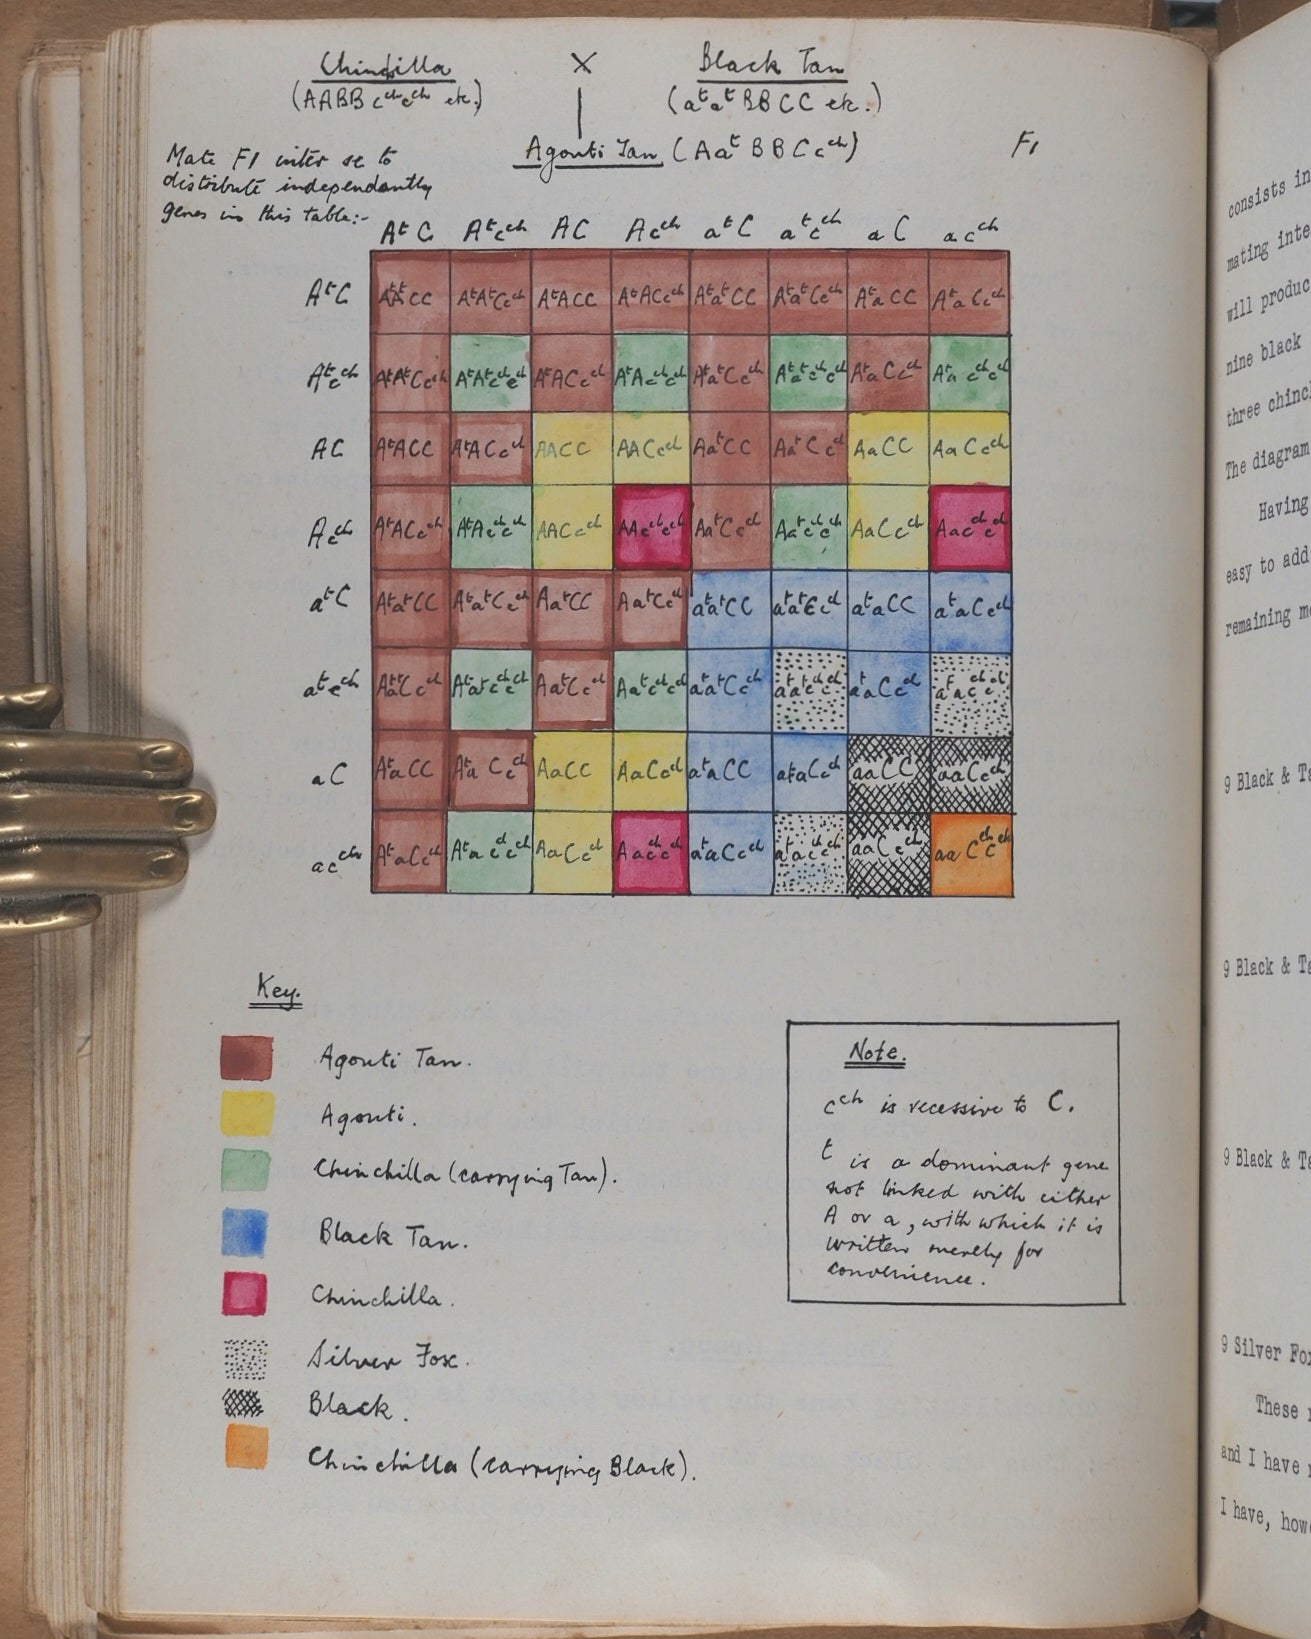 Chinchilla × Black Tan
(AABB cᶜʰcᶜʰ etc.) (aᵗaᵗ BBCC etc.)
Agouti Tan (Aaᵗ BBCcᶜʰ) F1
Mate F1 inter se to
distribute independantly
genes in this table:-
AᵗC Aᵗcᶜʰ AC Acᶜʰ aᵗC aᵗcᶜʰ aC acᶜʰ
AᵗC AᵗAᵗCC AᵗAᵗCcᶜʰ AᵗACC AᵗACcᶜʰ AᵗaᵗCC AᵗaᵗCcᶜʰ AᵗaCC AᵗaCcᶜʰ
Aᵗcᶜʰ AᵗAᵗCcᶜʰ AᵗAᵗcᶜʰcᶜʰ AᵗACcᶜʰ AᵗAcᶜʰcᶜʰ AᵗaᵗCcᶜʰ Aᵗaᵗcᶜʰcᶜʰ AᵗaCcᶜʰ Aᵗacᶜʰcᶜʰ
AC AᵗACC AᵗACcᶜʰ AACC AACcᶜʰ AaᵗCC AaᵗCcᶜʰ AaCC AaCcᶜʰ
Acᶜʰ AᵗACcᶜʰ AᵗAcᶜʰcᶜʰ AACcᶜʰ AAcᶜʰcᶜʰ AaᵗCcᶜʰ Aaᵗcᶜʰcᶜʰ AaCcᶜʰ Aacᶜʰcᶜʰ
aᵗC AᵗaᵗCC AᵗaᵗCcᶜʰ AaᵗCC AaᵗCcᶜʰ aᵗaᵗCC aᵗaᵗCcᶜʰ aᵗaCC aᵗaCcᶜʰ
aᵗcᶜʰ AᵗaᵗCcᶜʰ Aᵗaᵗcᶜʰcᶜʰ AaᵗCcᶜʰ Aaᵗcᶜʰcᶜʰ aᵗaᵗCcᶜʰ aᵗaᵗcᶜʰcᶜʰ aᵗaCcᶜʰ aᵗacᶜʰcᶜʰ
aC AᵗaCC AᵗaCcᶜʰ AaCC AaCcᶜʰ aᵗaCC aᵗaCcᶜʰ aaCC aaCcᶜʰ
acᶜʰ AᵗaCcᶜʰ Aᵗacᶜʰcᶜʰ AaCcᶜʰ Aacᶜʰcᶜʰ aᵗaCcᶜʰ aᵗacᶜʰcᶜʰ aaCcᶜʰ aaCᶜʰcᶜʰ
Key.
Agouti Tan.
Agouti.
Chinchilla (carrying Tan).
Black Tan.
Chinchilla.
Silver Fox.
Black.
Chinchilla (carrying Black).
Note.
cᶜʰ is recessive to C.
t is a dominant gene
not linked with either
A or a, with which it is
written merely for
convenience.
consists in
mating inte
will produc
nine black
three chinc
The diagram
Having
easy to add
remaining m
9 Black & Ta
9 Black & Ta
9 Black & Ta
9 Silver Fo
These
and I have
I have, how